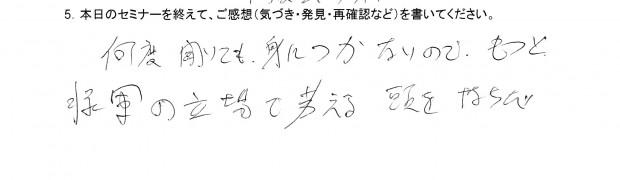 5. 本日のセミナーを終えて、ご感想(気づき・発見・再確認など)を書いてください。
何度聞いても、身につかないので、もっと
の立場で考える 頭を